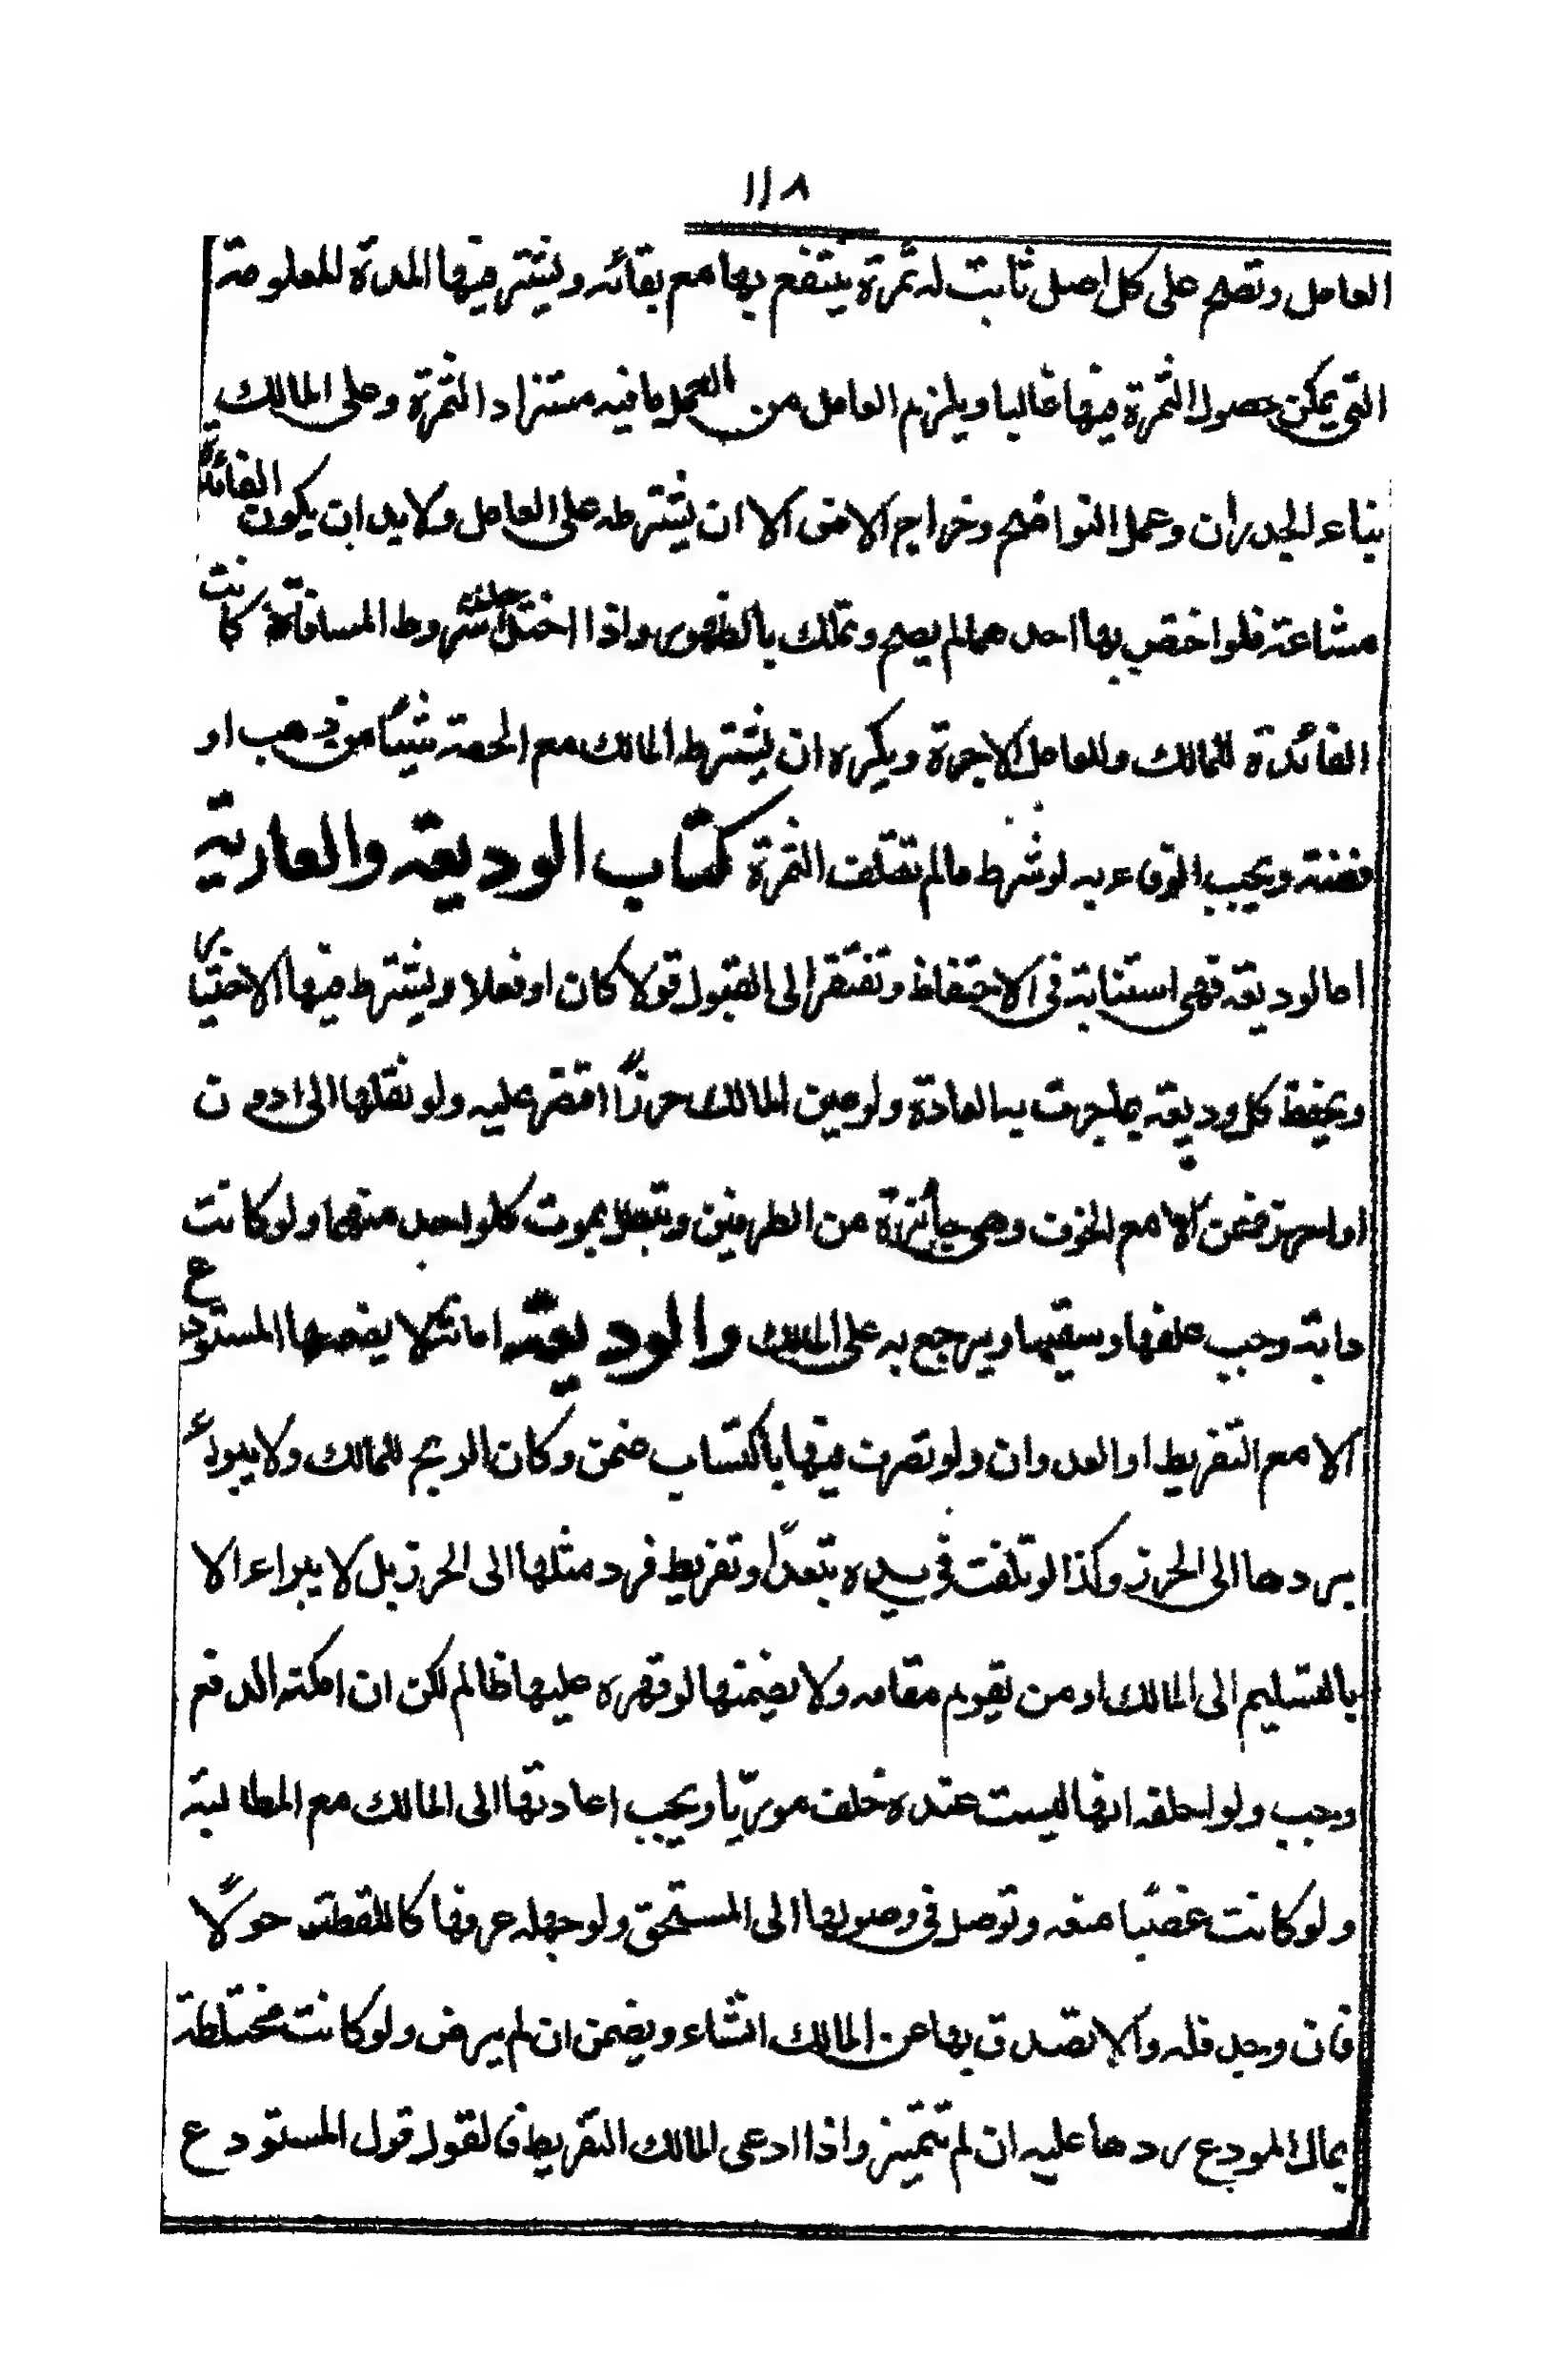 ١١٨
العامل وتصح على كل اصل ثابت له ثمرة ينتفع بها مع بقائه ويشتر فيها المدة المعلومة
التى يمكن حصول الثمرة فيها غالبا ويلزم العامل من العمل ما فيه مستزاد الثمرة وعلى المالك
بناء الجدران وعمل النواضح وخراج الارض الا ان يشترطه على العامل ولا بد ان يكون الفائدة
مشاعة فلو اختص بها احدهما لم يصح وتملك بالظهور واذا اختل شروط المساقاة كانت
الفائدة للمالك وللعامل الاجرة ويكره ان يشترط المالك مع الحصة شيئا من ذهب او
فضته ويجب الوفاء به لو شرط ما لم تتلف الثمرة كتاب الوديعة والعارية
اما لوديعة فهى استنابة فى الاحتفاظ وتفتقر الى القبول قولا كان او فعلا ويشترط فيها الاختيار
ويحفظ كل وديعة بما جرت به العادة ولو عين المالك حرزًا اقتصر عليه ولو نقلها الى ادون
او احرز ضمن الا مع الخوف وهى جائزة من الطرفين وتبطل بموت كلواحد منهما ولو كانت
دابة وجب علفها وسقيها ويرجع به على المالك والوديعة امانة لا يضمنها المستودع
الا مع التفريط او العدوان ولو تصرف فيها باكتساب ضمن وكان الربح للمالك ولا يبرء
بردها الى الحرز وكذا لو تلفت فى يده بتعدّ او تفريط فرد مثلها الى الحرز بل لا يبراء الا
بالتسليم الى المالك او من يقوم مقامه ولا يضمنها لو قهره عليها ظالم لكن ان امكنه الدفع
وجب ولو احلفه انها ليست عنده حلف مورّيا ويجب اعادتها الى المالك مع المطالبة
ولو كانت غصبًا منعه وتوصل فى وصولها الى المستحق ولو جهله عرفها كاللقطة حولًا
فان وجد فله والا تصدق بها عن المالك انشاء ويضمن ان لم يرض ولو كانت مختلطة
بمال المودع ردها عليه ان لم تتميز واذا ادعى المالك التفريط فالقول قول المستودع